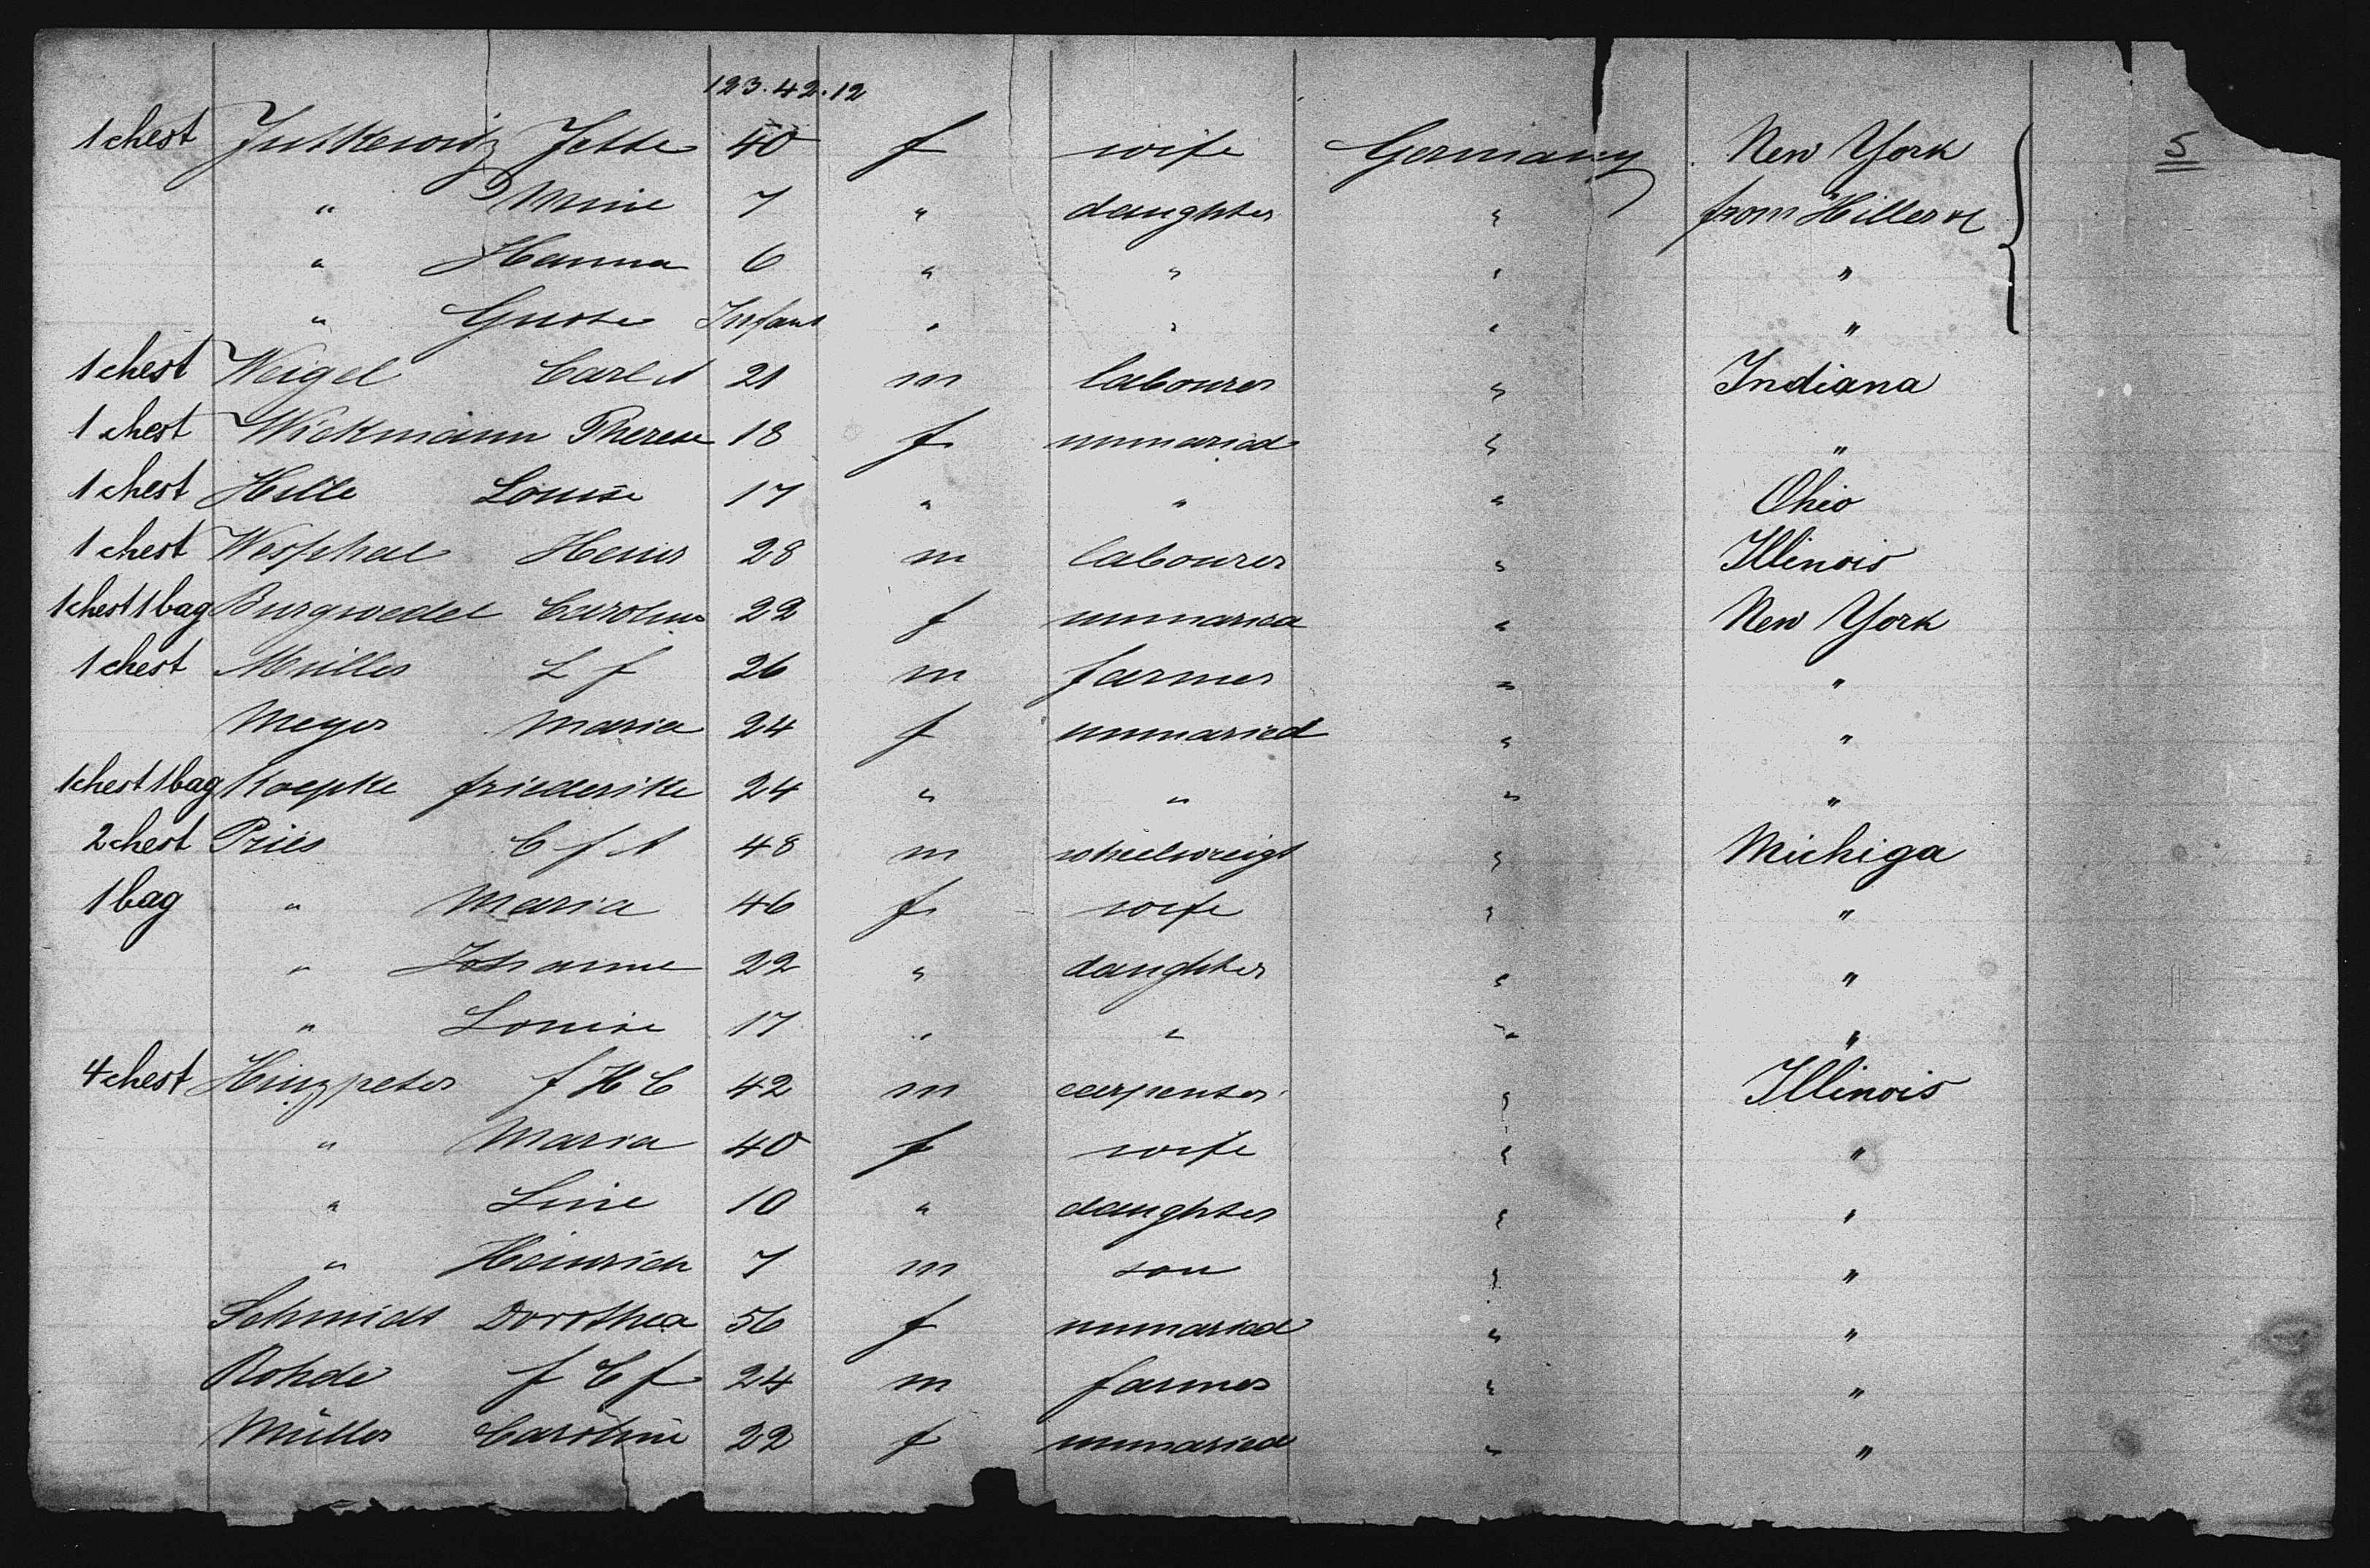 123.42.12
1 chest Jutkewitz Jette 40 f wife Germany New York 5
" Mine 7 " daughter " from Hiller &
" Hanna 6 " " " "
" Guste Infant " " " "
1 chest Weigel Carl A 21 m labourer " Indiana
1 chest Wickmann Therese 18 f unmaried " "
1 chest Hille Louise 17 " " " Ohio
1 chest Westphal Heinr 28 m labourer " Illinois
1 chest 1 bag Burgwedel Caroline 22 f unmaried " New York
1 chest Müller L f 26 m farmer " "
Meyer Maria 24 f unmaried " "
1 chest 1 bag Koepke friederike 24 " " " "
2 chest Pries C f A 48 m wheelwreigt " Michiga
1 bag " Maria 46 f wife " "
" Johanne 22 " daughter " "
" Louise 17 " " " "
4 chest Hinzpeter f H C 42 m carpenter " Illinois
" Maria 40 f wife " "
" Line 10 " daughter " "
" Heinrich 7 m son " "
Schmidt Dorothea 56 f unmaried " "
Rohde f C f 24 m farmer " "
Müller Caroline 22 f unmaried " "